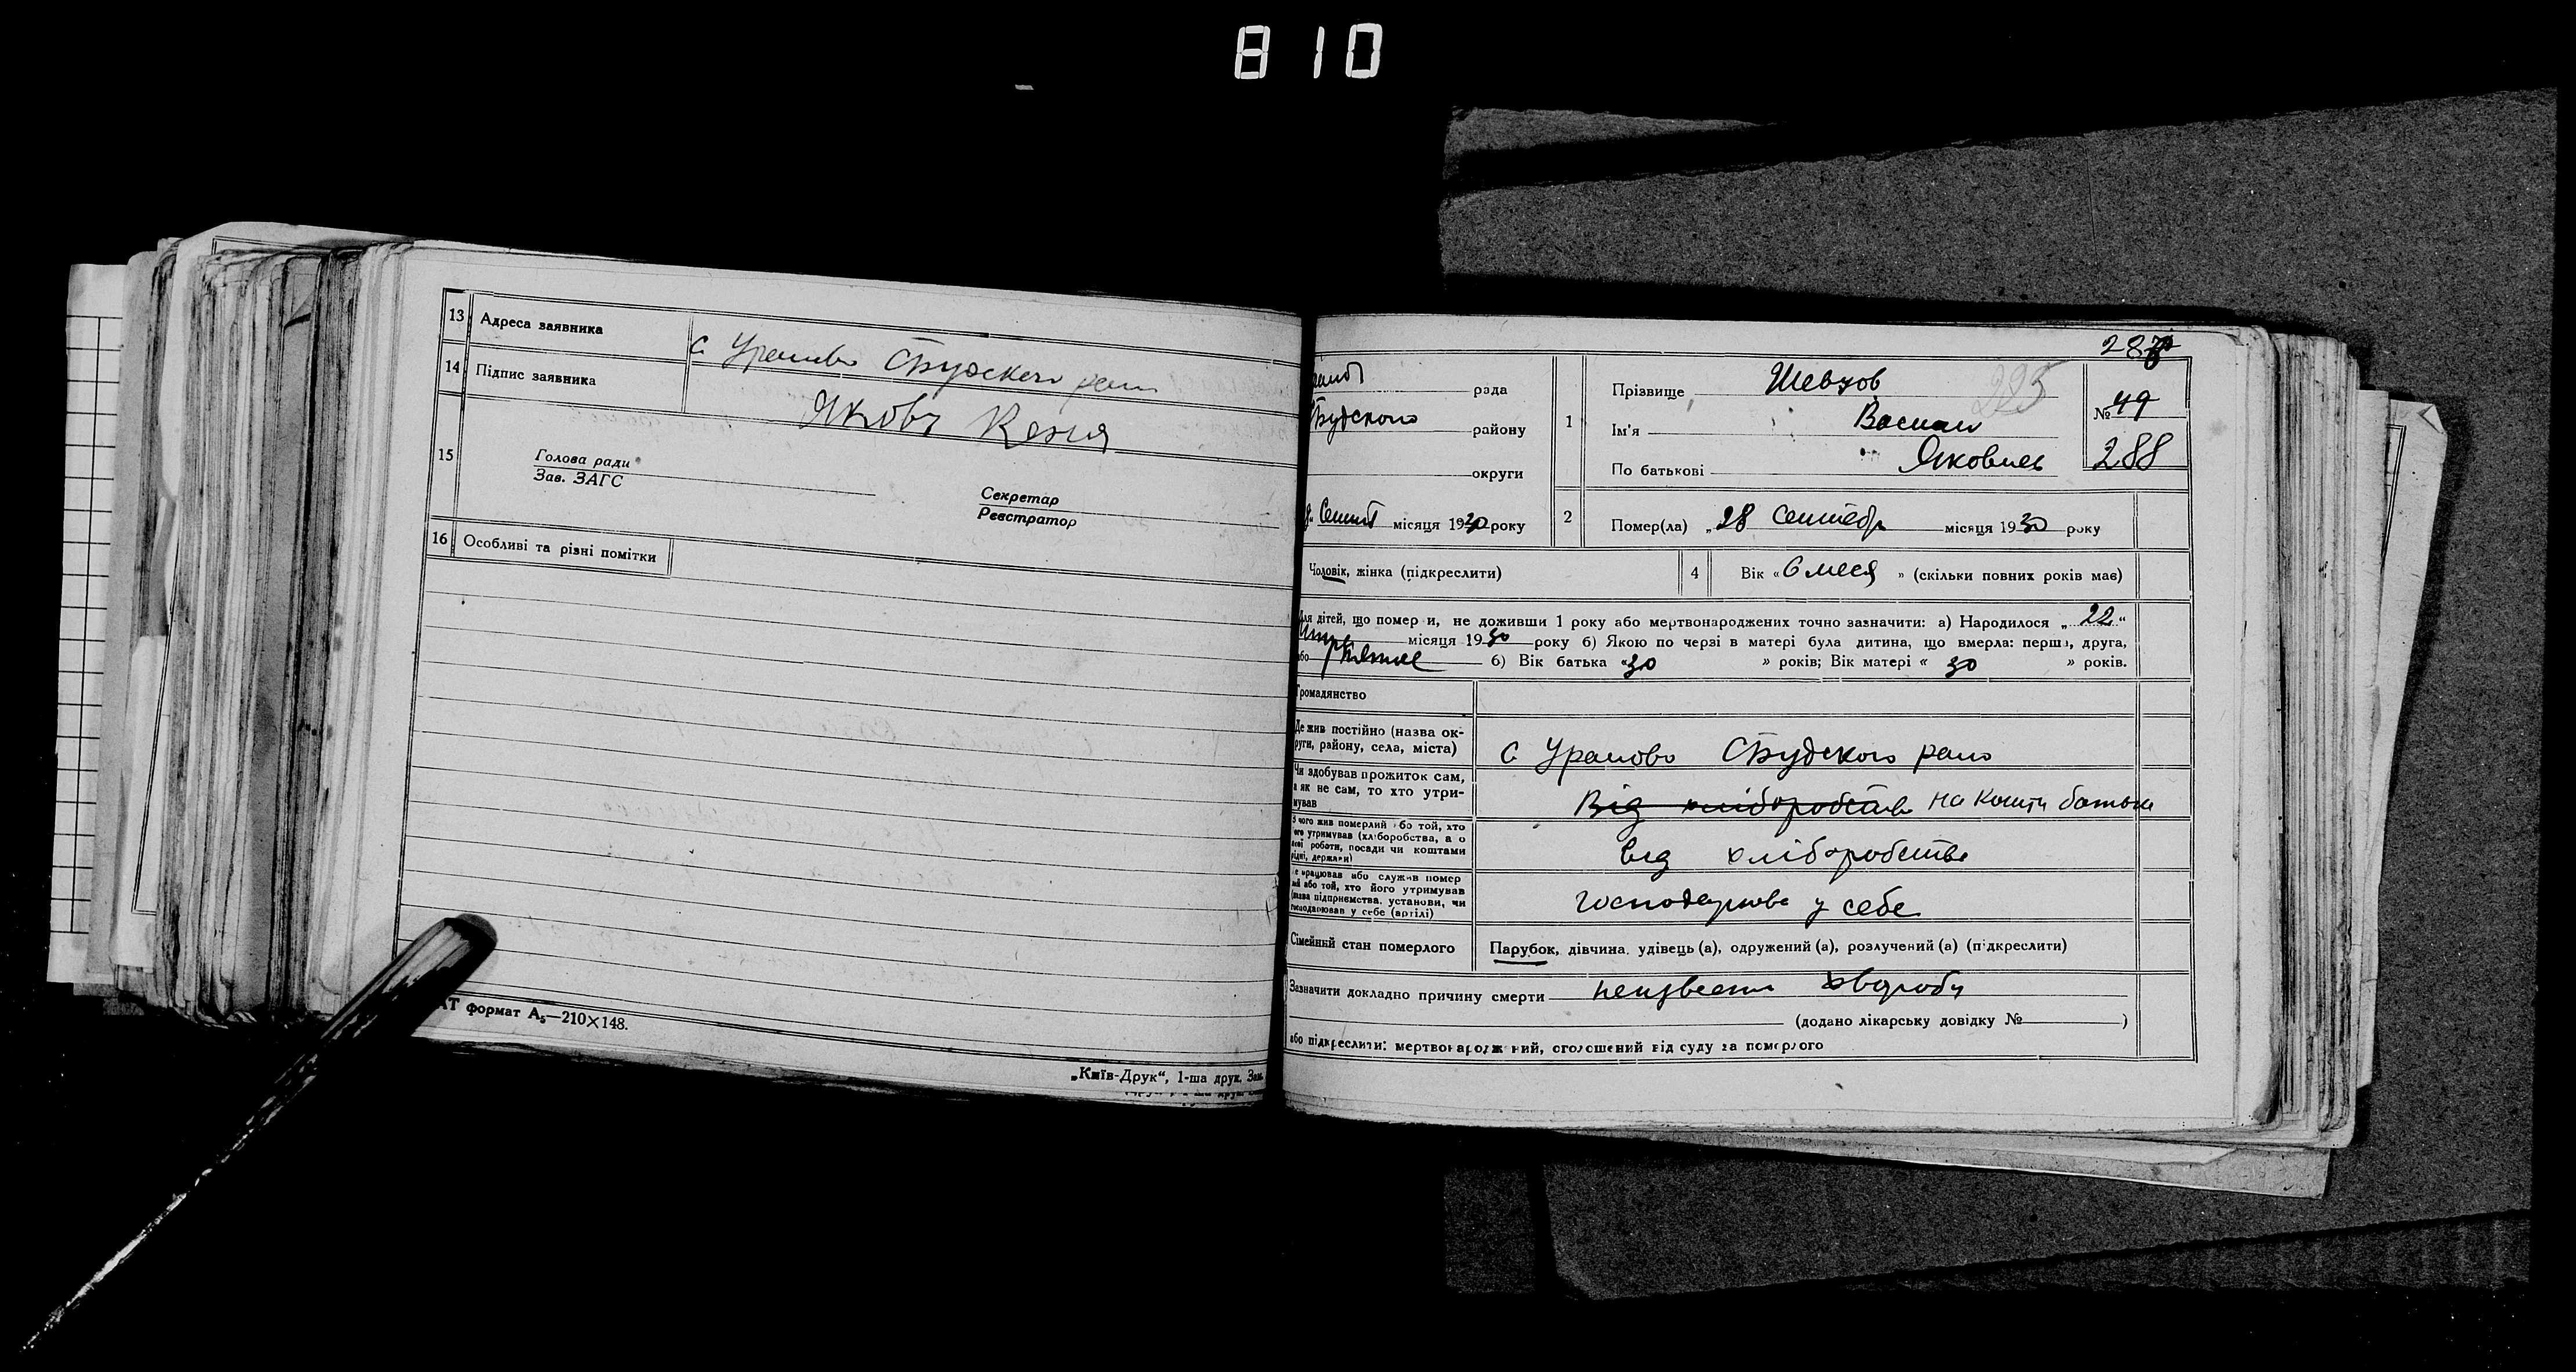 810
13 Адреса заявника с Уралово СБудского рано
14 Підпис заявника Яковъ
15 Голова ради
Зав. ЗАГС
Секретар
Реєстратор
16 Особливі та різні помітки
АТ формат А₅—210×148.
„Київ-Друк“, 1-ша друк. Зам.
287
рада
СБудского району
округи
місяця 1930 року
1 Прізвище Шевцов
225
Ім'я Васили
По батькові Яковлев
№ 49
288
2 Помер(ла) „28 Сентебр місяця 1930 року
Чоловік, жінка (підкреслити)
4 Вік «6 меся» (скільки повних років має)
Для дітей, що померли, не доживши 1 року або мертвонароджених точно зазначити: а) Народилося „22“
місяця 1930 року б) Якою по черзі в матері була дитина, що вмерла: перша, друга,
або 6) Вік батька «30» років; Вік матері «30» років.
Громадянство
Де жив постійно (назва округи, району, села, міста) с Уралово СБудского рано
Чи здобував прожиток сам,
а як не сам, то хто утримував
Від хліборобства на кошти батька
З чого жив померлий або той, хто
його утримував (хліборобства, а о
роботи, посади чи коштами
рідні, держави)
від хліборобства
Де працював або служив помер
ий або той, хто його утримував
(назва підприємства, установи, чи
господарював у себе (артілі)
господарював у себе
Сімейний стан померлого
Парубок, дівчина, удівець (а), одружений (а), розлучений (а) (підкреслити)
Зазначити докладно причину смерти неизвесни хвороби
(додано лікарську довідку № )
або підкреслити: мертвонароджений, оголошений від суду за померлого